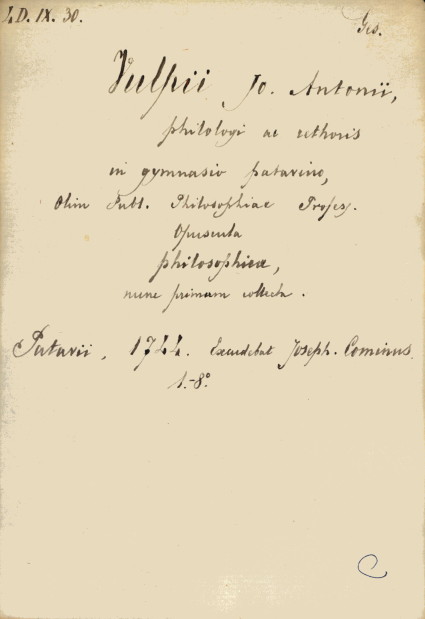 I.D. IX. 30. Ges.
Vulpii Jo. Antonii,
philologi ac rethoris
in gymnasio patavino,
Olim Publ. Philosophiae Profess.
Opuscula
philosophica,
nunc primum collecta.
Patavii, 1744. Excudebat Joseph. Cominus.
1.-8°
C